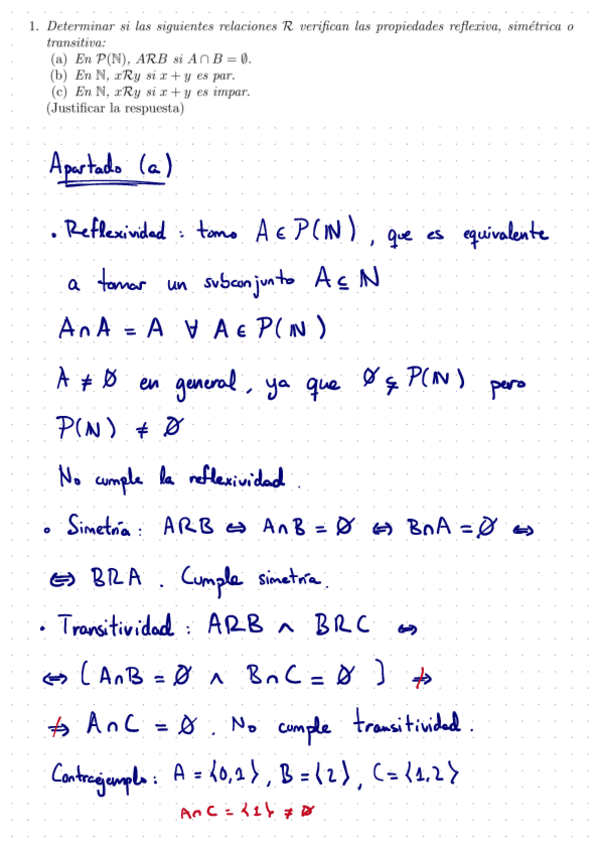 1. Determinar si las siguientes relaciones R verifican las propiedades reflexiva, simétrica o
transitiva:
(a) En P(ℕ), ARB si A ∩ B = ∅.
(b) En ℕ, xRy si x + y es par.
(c) En ℕ, xRy si x + y es impar.
(Justificar la respuesta)
Apartado (a)
• Reflexividad : tomo A ∈ P(ℕ), que es equivalente
a tomar un subconjunto A ⊆ ℕ
A ∩ A = A ∀ A ∈ P(ℕ)
A ≠ ∅ en general, ya que ∅ ⊊ P(ℕ) pero
P(ℕ) ≠ ∅
No cumple la reflexividad.
• Simetría : ARB ⇔ A∩B = ∅ ⇔ B∩A = ∅ ⇔
⇔ BRA . Cumple simetría.
• Transitividad : ARB ∧ BRC ⇔
⇔ [ A∩B = ∅ ∧ B∩C = ∅ ] ⇏
⇏ A∩C = ∅ . No cumple transitividad.
Contraejemplo : A = {0,1}, B = {2}, C = {1,2}
A∩C = {1} ≠ ∅